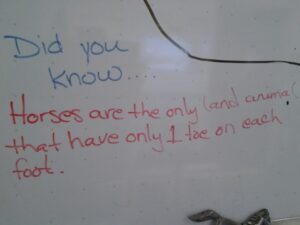 Did you
know....
Horses are the only land animal
that have only 1 toe on each
foot.